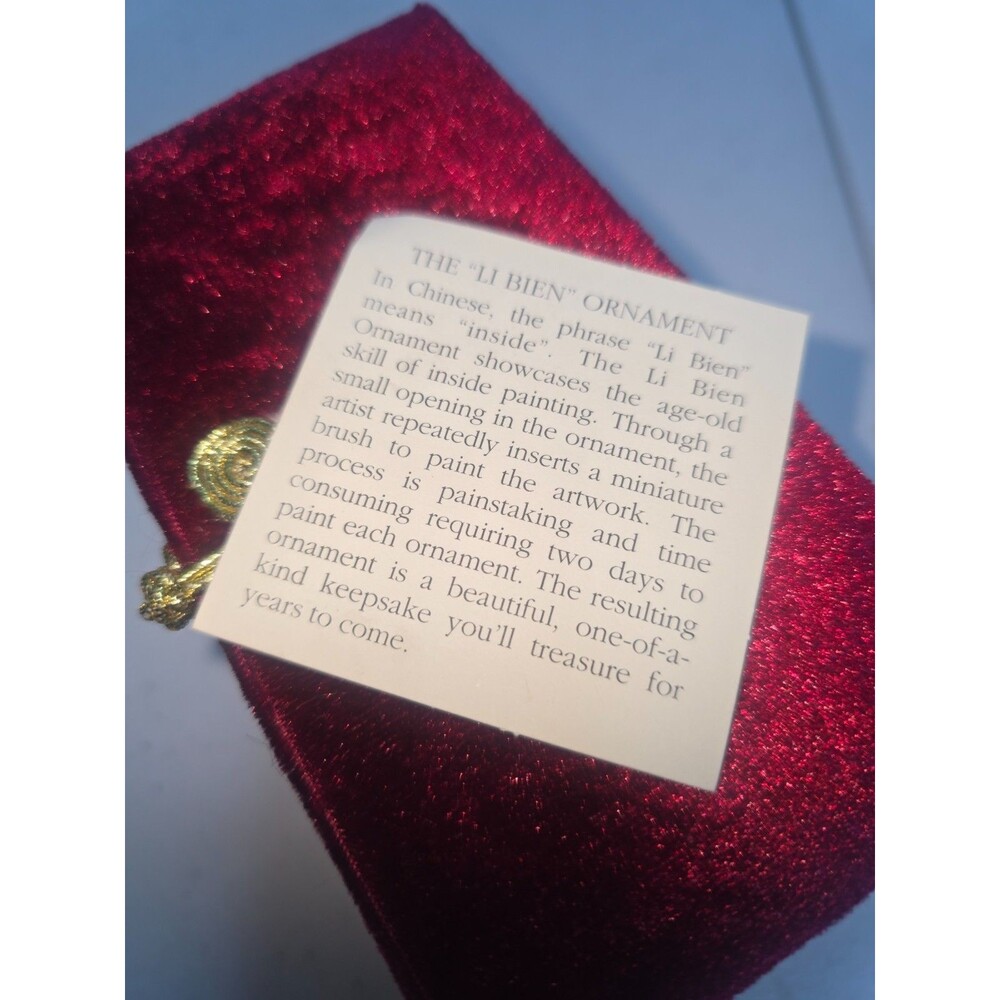 THE "LI BIEN" ORNAMENT
In Chinese, the phrase "Li Bien"
means "inside". The Li Bien
Ornament showcases the age-old
skill of inside painting. Through a
small opening in the ornament, the
artist repeatedly inserts a miniature
brush to paint the artwork. The
process is painstaking and time
consuming requiring two days to
paint each ornament. The resulting
ornament is a beautiful, one-of-a-
kind keepsake you'll treasure for
years to come.